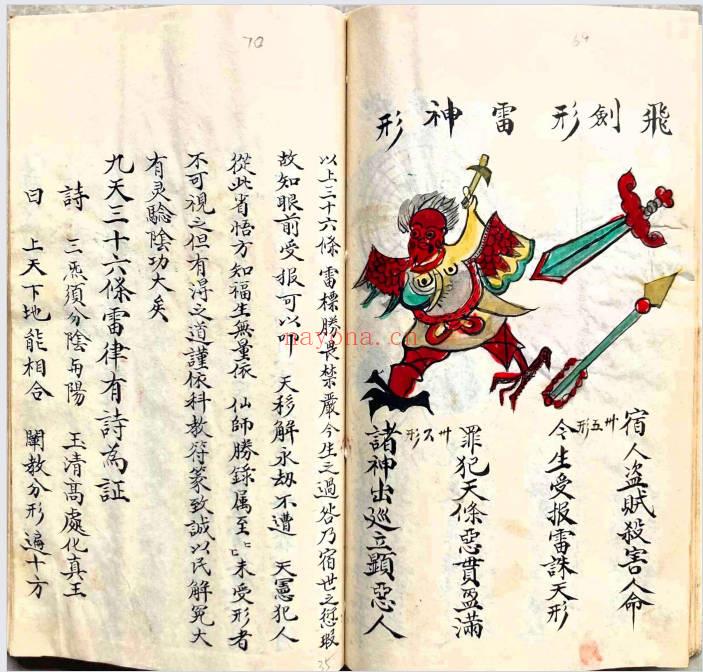 69
飛劍形 雷神形
宿人盗賊殺害人命
卅五形
今生受报雷誅天形
罪犯天條惡貫盈滿
卅六形
諸神出巡立顕惡人
70
以上三十六條雷標勝畏禁嚴今生之過咎乃宿世之愆瑕
故知眼前受报可以叩 天移解永劫不遭 天憲犯人
從此省悟方知福生無量依 仙師勝錄属至 未受形者
不可視之但有得之道謹依科教符篆致誠以民解冤大
有灵驗陰功大矣
九天三十六條雷律有詩為証
詩 三炁須分陰与陽 玉清髙處化真王
曰 上天下地能相合 闡教分形遍十方
35
nayona.cn